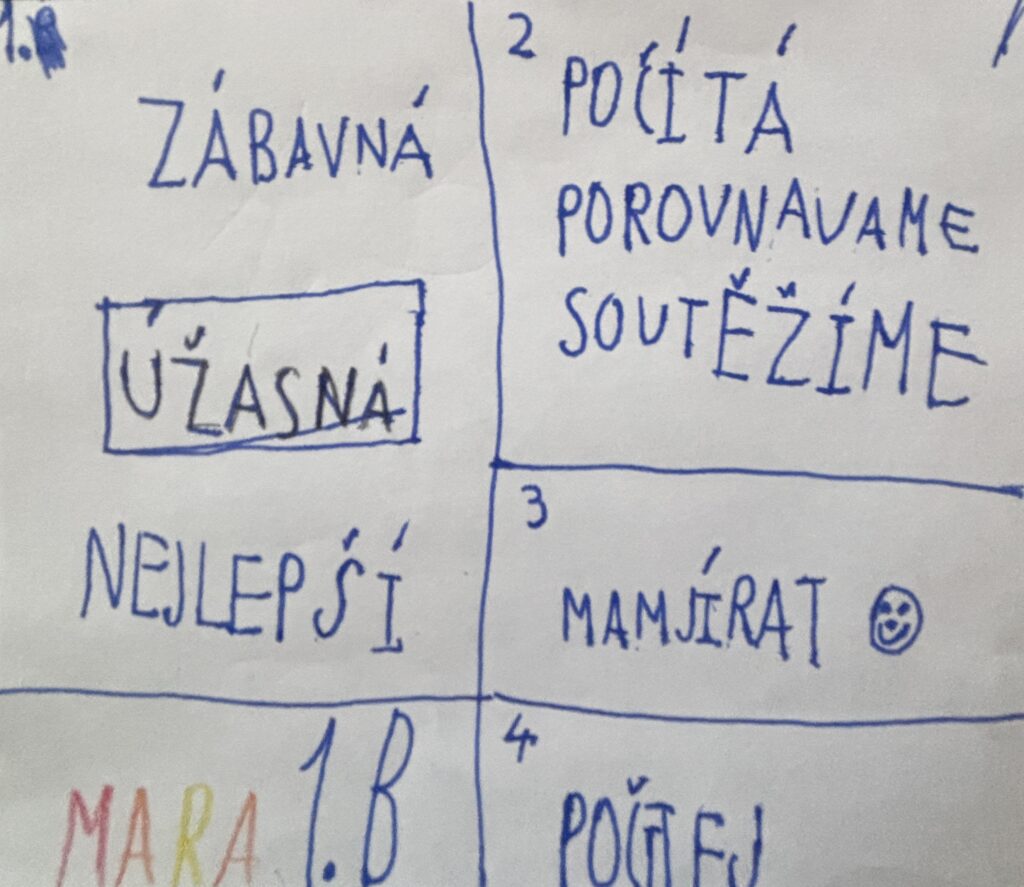 1.
ZÁBAVNÁ
ÚŽASNÁ
NEJLEPŠÍ
MARA 1.B
2
POČÍTÁ
POROVNAVAME
SOUTĚŽÍME
3
MAMJÍRAT
4